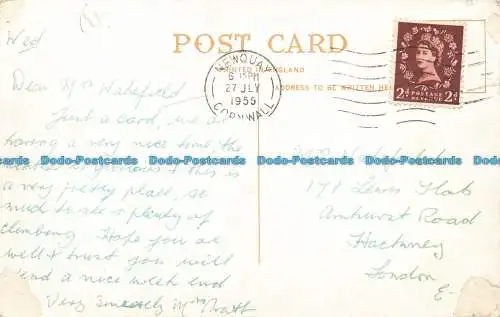 Wed
POST CARD
PRINTED IN ENGLAND
ADDRESS TO BE WRITTEN HE
NEWQUAY
6 PM
27 JLY
1955
CORNWALL
2d POSTAGE REVENUE 2d
Dear Mrs Wakefield
Just a card, we are
having a very nice time, the
is glorious & this is
a very pretty place, so
much to see & plenty of
climbing. Hope you are
well & trust you will
end a nice week end
Very Sincerely Mrs Pratt
Wakefield
171 Lewis Flats
Amhurst Road
Hackney
London
E
Dodo-Postcards Dodo-Postcards Dodo-Postcards Dodo-Postcards Dodo-Postcards